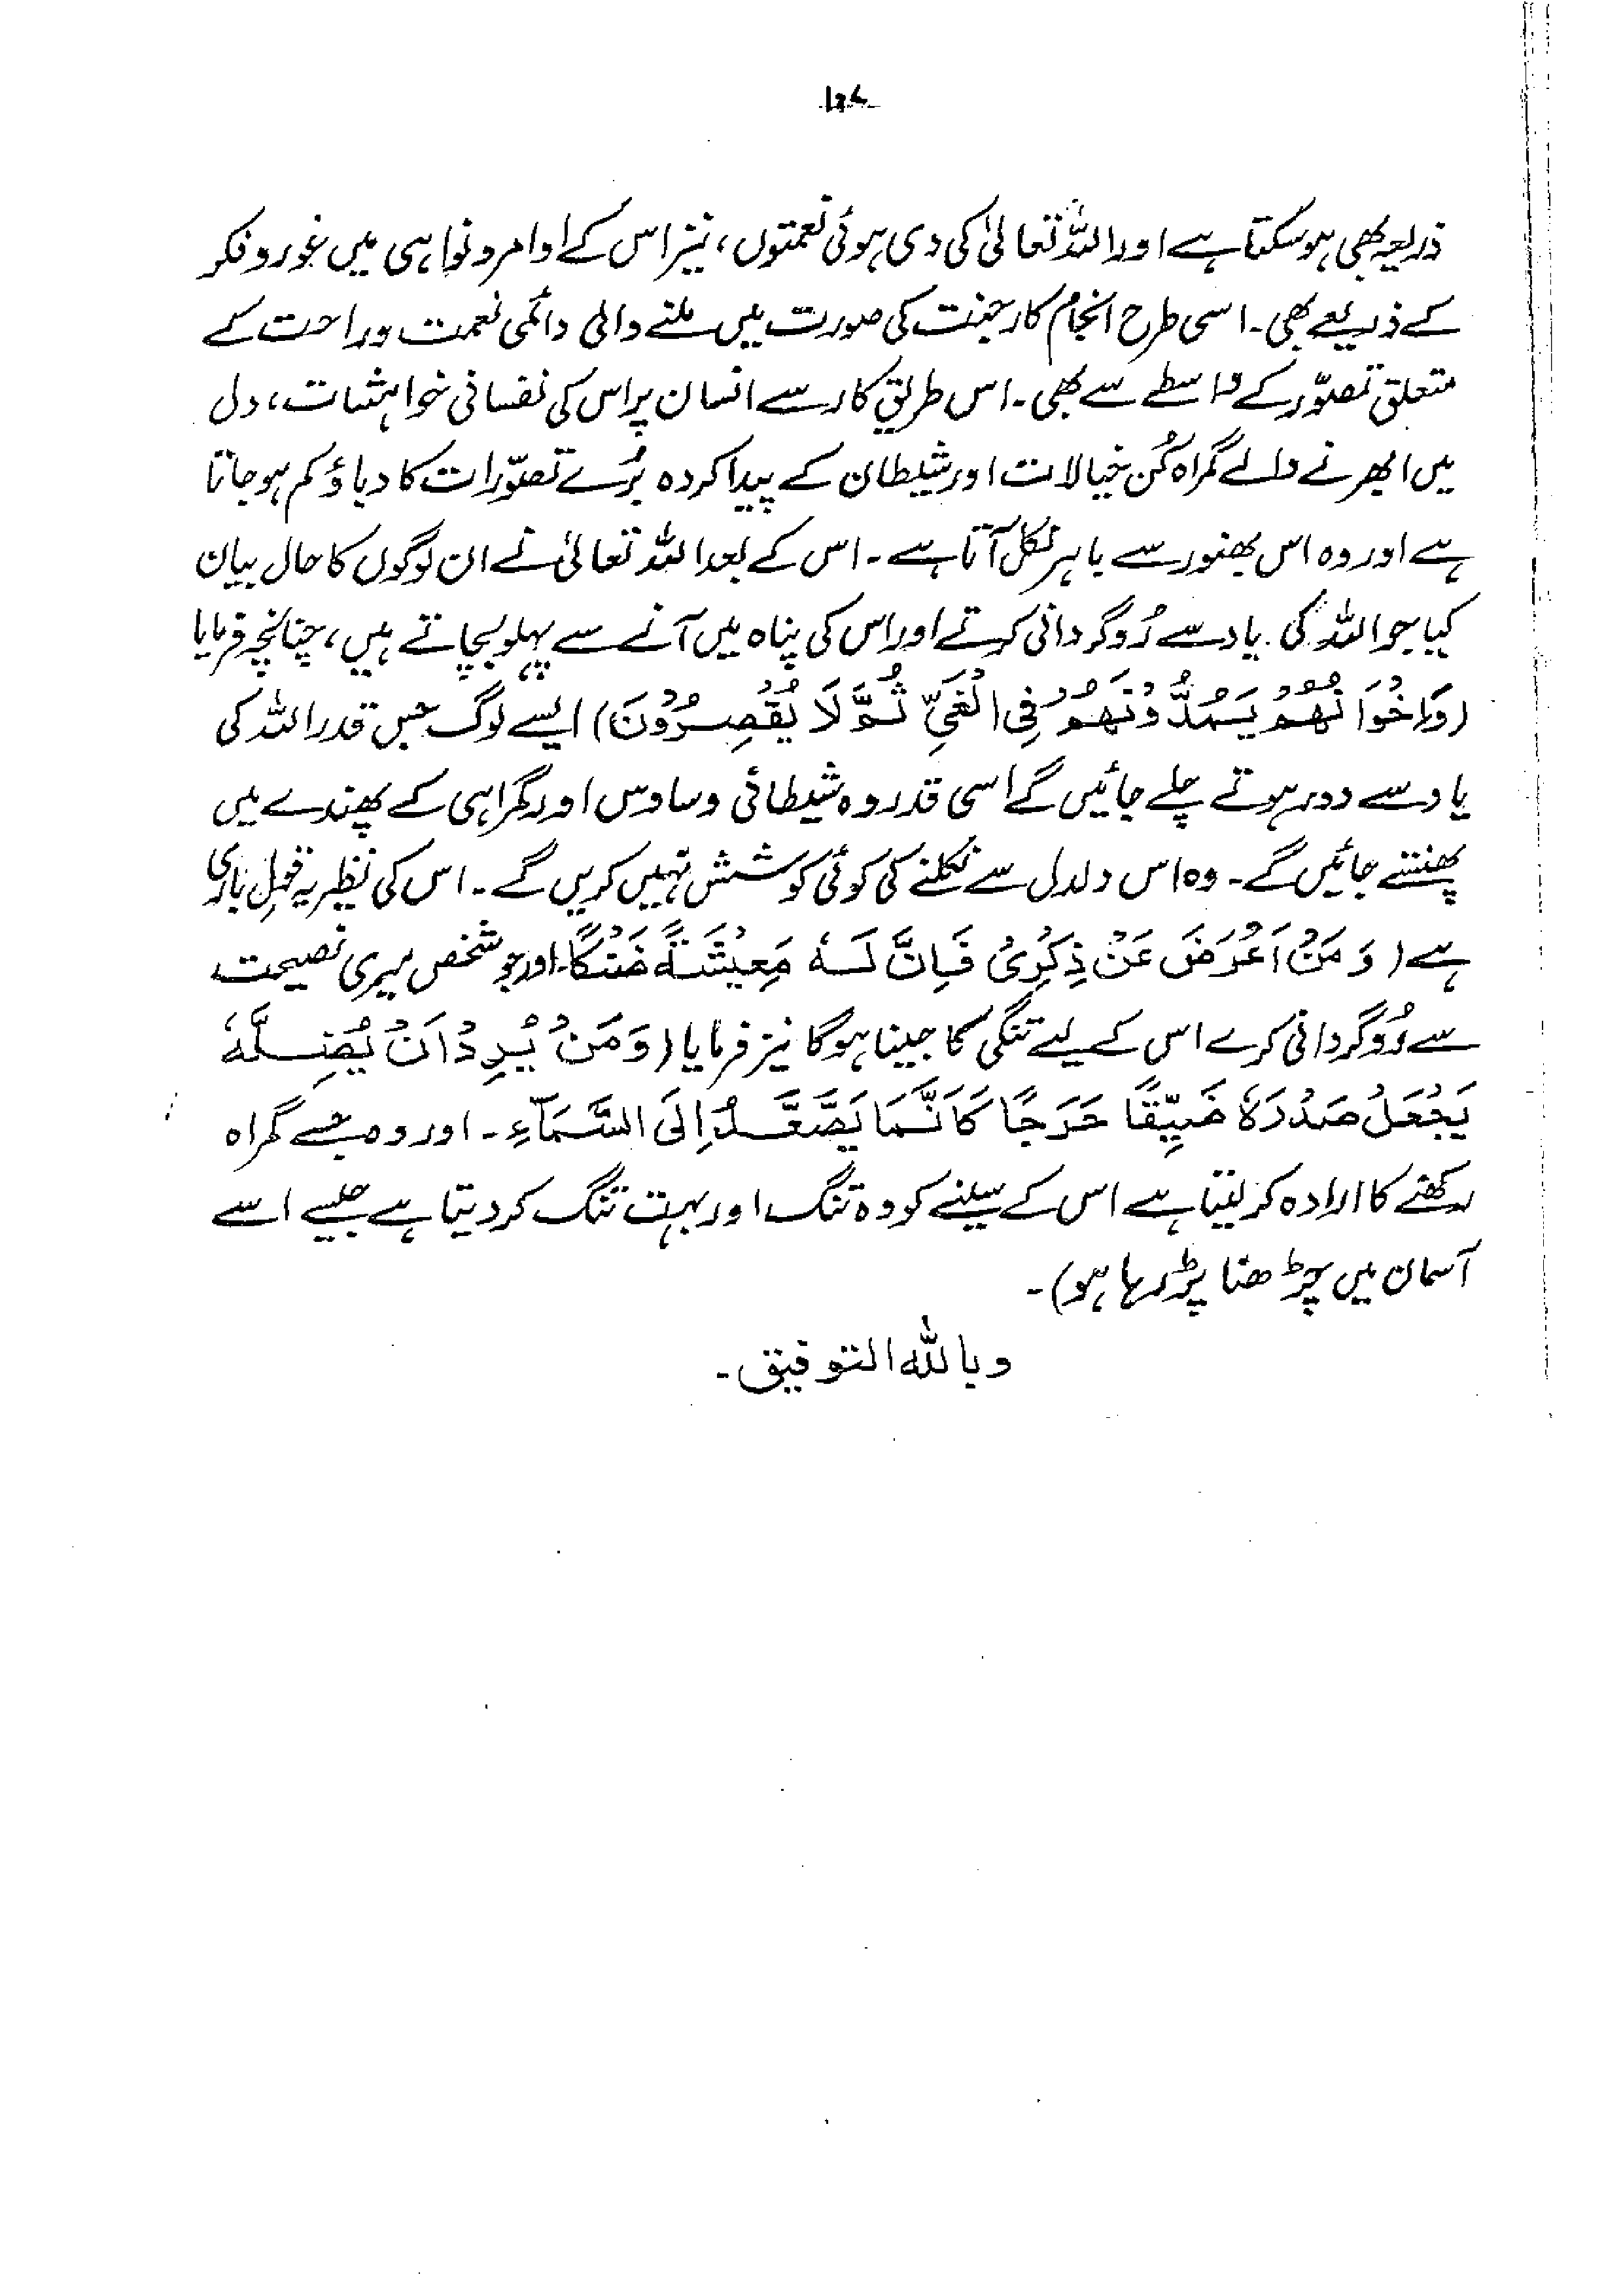 ذریعہ بھی ہو سکتا ہے اور اللہ تعالیٰ کی دی ہوئی نعمتوں، نیز اس کے اوامر و نواہی میں غور و فکر
کے ذریعے بھی۔ اسی طرح انجام کار جنت کی صورت میں ملنے والی دائمی نعمت و راحت کے
متعلق تصوّر کے واسطے سے بھی۔ اس طریق کار سے انسان پر اس کی نفسانی خواہشات، دل
میں ابھرنے والے گمراہ کُن خیالات اور شیطان کے پیدا کردہ بُرے تصوّرات کا دباؤ کم ہو جاتا
ہے اور وہ اس بھنور سے باہر نکل آتا ہے۔ اس کے بعد اللہ تعالیٰ نے ان لوگوں کا حال بیان
کیا جو اللہ کی یاد سے رُوگردانی کرتے اور اس کی پناہ میں آنے سے پہلو بچاتے ہیں، چنانچہ فرمایا
(وَاِخْوَانُهُمْ يَمُدُّوْنَهُمْ فِى الْغَىِّ ثُمَّ لَا يُقْصِرُوْنَ) ایسے لوگ جس قدر اللہ کی
یاد سے دور ہوتے چلے جائیں گے اسی قدر وہ شیطانی وساوس اور گمراہی کے پھندے میں
پھنستے جائیں گے۔ وہ اس دلدل سے نکلنے کی کوئی کوشش نہیں کریں گے۔ اس کی نظیر یہ قولِ باری
ہے (وَمَنْ اَعْرَضَ عَنْ ذِكْرِىْ فَاِنَّ لَهٗ مَعِيْشَةً ضَنْكًا۔ اور جو شخص میری نصیحت
سے رُوگردانی کرے اس کے لیے تنگی کا جینا ہوگا نیز فرمایا (وَمَنْ يُّرِدْ اَنْ يُّضِلَّهٗ
يَجْعَلْ صَدْرَهٗ ضَيِّقًا حَرَجًا كَاَنَّمَا يَصَّعَّدُ اِلَى السَّمَآءِ۔ اور وہ جسے گمراہ
رکھنے کا ارادہ کر لیتا ہے اس کے سینے کو وہ تنگ اور بہت تنگ کر دیتا ہے جیسے اسے
آسمان میں چڑھنا پڑ رہا ہو)۔
وباللہ التوفیق۔